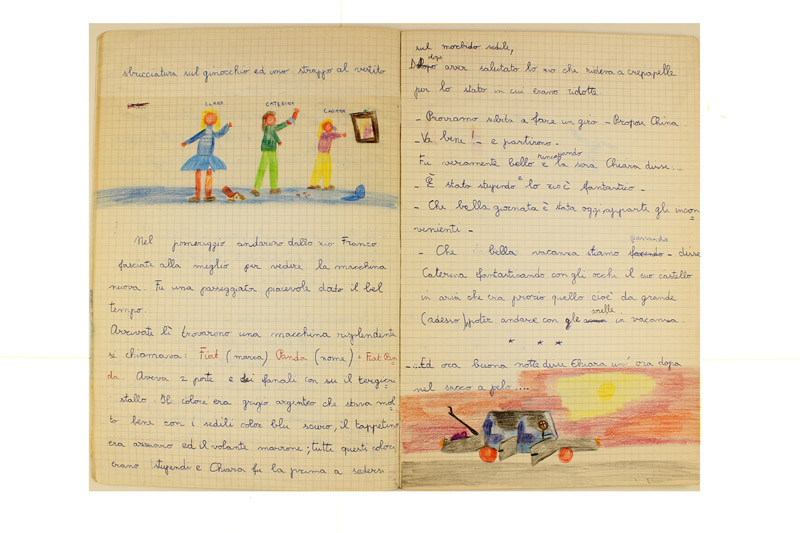 sbrucciatura sul ginocchio ed uno strappo al vestito
CLARA
CATERINA
CHIARA
Nel pomeriggio andarono dallo zio Franco
fasciate alla meglio per vedere la macchina
nuova. Fu una passeggiata piacevole dato il bel
tempo
Arrivate lì trovarono una macchina risplendente
si chiamava: Fiat (marca) Panda (nome) = Fiat Pan
da. Aveva 2 porte e dei fanali con su il tergicri
stallo. Il colore era grigio argenteo che stava mol
to bene con i sedili color blu scuro, il tappetino
era azzurro ed il volante marrone; tutti questi colori
erano stupendi e Chiara fu la prima a sedersi
sul morbido sedile,
dopo
Dopo aver salutato lo zio che rideva a crepapelle
per lo stato in cui erano ridotte.
- Proviamo subito a fare un giro - Propose Chiara
- Va bene! - e partirono.
rincasando
Fu veramente bello e la sera Chiara disse: -
- È stato stupendo e lo zio è fantastico -
- Che bella giornata è stata oggi, apparte gli incon
venienti -
passando
- Che bella vacanza stiamo facendo - disse
Caterina fantasticando con gli occhi il suo castello
in aria che era proprio quello cioè da grande
snelle
(adesso) poter andare con gle in vacanza.
* * *
-...Ed ora buona notte disse Chiara un' ora dopo
nel sacco a pelo....